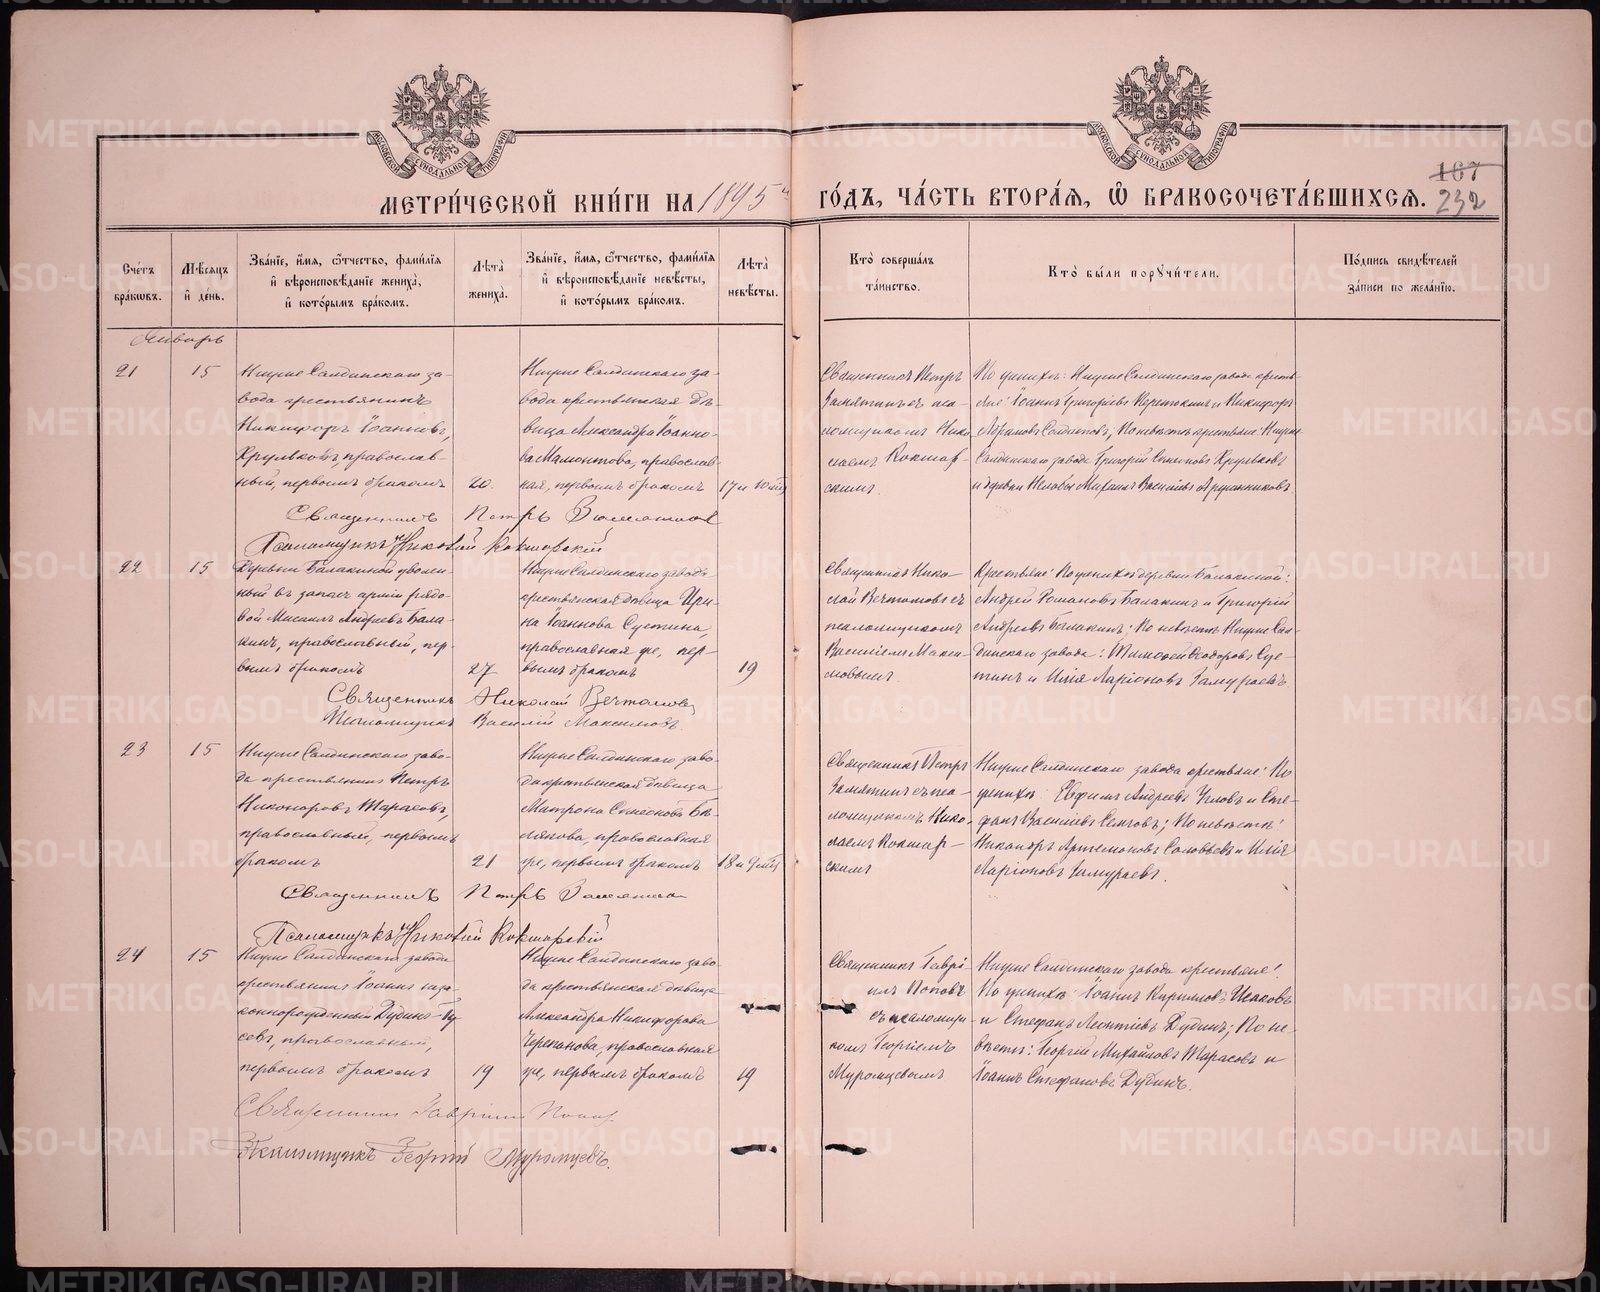 МОСКОВСКОЙ СѴНОДАЛЬНОЙ ТИПОГРАФІИ
МОСКОВСКОЙ СѴНОДАЛЬНОЙ ТИПОГРАФІИ
МЕТРИ́ЧЕСКОЙ КНИ́ГИ НА 1895й ГО́ДЪ, ЧА́СТЬ ВТОРА́Ѧ, Ѽ БРАКОСОЧЕТА́ВШИХСѦ.
167
232
Сче́тъ бра́кѡвъ.
Мѣ́сѧцъ и҆ де́нь.
Зва́нїе, и҆́мѧ, ѻ҆́тчество, фамі́лїѧ и҆ вѣроисповѣ́данїе жениха̀, и҆ кото́рымъ бра́комъ.
Лѣ́та жениха̀.
Зва́нїе, и҆́мѧ, ѻ҆́тчество, фамі́лїѧ и҆ вѣроисповѣ́данїе невѣ́сты, и҆ кото́рымъ бра́комъ.
Лѣ́та невѣ́сты.
Кто̀ соверша́лъ та́инство.
Кто̀ бы́ли порꙋчи́тели.
По́дпись свидѣ́телей за́писи по жела́нїю.
Январь
21
15
Нижне Салдинскаго за-
вода крестьянинъ
Никифоръ Іоанновъ
Крульковъ, православ-
ный, первымъ бракомъ
20.
Нижне Салдинскаго за-
вода крестьянская дѣ-
вица Александра Іоанно-
ва Мамонтова, православ-
ная, первымъ бракомъ
17 и 10 мѣс
Священникъ Петръ
Замятинъ съ пса-
ломщикомъ Нико-
лаемъ Кокшар-
скимъ.
По женихѣ: Нижне Салдинскаго завода кресть-
яне: Іоаннъ Григоріевъ и Никифоръ
Абрамовъ Солдатовъ; По невѣстѣ крестьяне: Нижне
Салдинскаго завода Григорій Семеновъ Крульковъ
и деревни Михаилъ Васильевъ
Священникъ Петръ Замятинъ
Псаломщикъ Николай Кокшарскій
22
15
Деревни Балакиной уволен-
ный въ запасъ арміи рядо-
вой Михаилъ Андреевъ Бала-
кинъ, православный, пер-
вымъ бракомъ
27
Нижне Салдинскаго завода
крестьянская дѣвица Ири-
на Іоаннова Суетина,
православная же, пер-
вымъ бракомъ
19
Священникъ Нико-
лай Вечтомовъ съ
псаломщикомъ
Василіемъ Макси-
мовымъ.
Крестьяне: По женихѣ деревни Балакиной:
Андрей Романовъ Балакинъ и Григорій
Андреевъ Балакинъ; По невѣстѣ Нижне Сал-
динскаго завода: Тимофей Ѳеодоровъ Суе-
тинъ и Илія Ларіоновъ Замураевъ
Священникъ Николай Вечтомовъ
Псаломщикъ Василій Максимовъ.
23
15
Нижне Салдинскаго заво-
да крестьянинъ Петръ
Никоноровъ Тарасовъ,
православный, первымъ
бракомъ
21
Нижне Салдинскаго заво-
да крестьянская дѣвица
Матрона Семенова Бѣ-
лякова, православная
же, первымъ бракомъ
18 и 9 мѣс
Священникъ Петръ
Замятинъ съ пса-
ломщикомъ Нико-
лаемъ Кокшар-
скимъ
Нижне Салдинскаго завода крестьяне: По
женихѣ: Евфимъ Андреевъ и Сте-
фанъ Васильевъ; По невѣстѣ:
Никаноръ Артемоновъ Соловьевъ и Илія
Ларіоновъ Замураевъ.
Священникъ Петръ Замятинъ
Псаломщикъ Николай Кокшарскій
24
15
Нижне Салдинскаго завода
крестьянинъ Іоаннъ неза-
коннорожденный Дубинъ-Гу-
севъ, православный,
первымъ бракомъ
19
Нижне Салдинскаго заво-
да крестьянская дѣвица
Александра Никифорова
Черепанова, православная
же, первымъ бракомъ
19
Священникъ Гаврі-
илъ Поповъ
съ псаломщи-
комъ Георгіемъ
Муромцевымъ
Нижне Салдинскаго завода крестьяне:
По женихѣ: Іоаннъ Кирилловъ Исаковъ
и Стефанъ Леонтіевъ Дубинъ; По не-
вѣстѣ: Георгій Михайловъ Тарасовъ и
Іоаннъ Стефановъ Дубинъ.
Священникъ Гавріилъ Поповъ
Псаломщикъ Георгій Муромцевъ.
METRIKI.GASO-URAL.RU